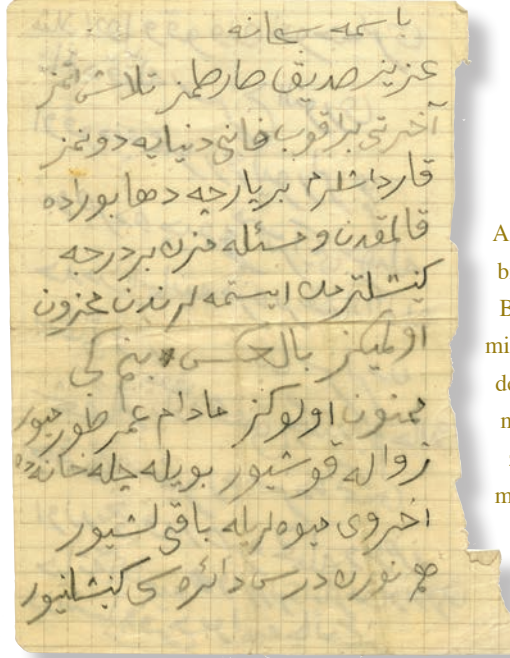 باسمه سبحانه
عزيز صديق صارصلمز تلاش ايتمز
آخرتى براقوب فانى دنيايه دونمز
قارداشلرم بر پارچه دها بوراده
قالمقدن و مسئله مزك بر درجه
كنيشلتمك ايستمه لرندن محزون
اولميكز بالعكس بنم كبى
ممنون اولوكز مادام عمر طورميور
زواله قوشيور بويله چله خانه ده
اخروى ميوه لريله باقى لشيور
هم نورك درس دائره سى كنيشلنيور
A
b
B
mi
de
n
m